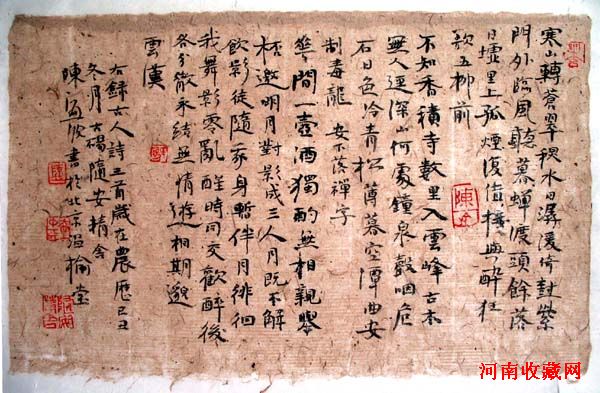 寒山轉蒼翠秋水日潺湲倚杖柴
門外臨風聽暮蟬渡頭餘落
日墟里上孤煙復值接輿醉狂
歌五柳前
不知香積寺數里入雲峰古木
無人逕深山何處鐘泉聲咽危
石日色冷青松薄暮空潭曲安
制毒龍 安下落禪字
花間一壺酒獨酌無相親舉
杯邀明月對影成三人月既不解
飲影徒隨我身暫伴月徘徊
我舞影零亂醒時同交歡醉後
各分散永結無情遊相期邈
雲漢
右錄古人詩三首歲在農歷己丑
冬月 隨安精舍
陳 書於北京溫榆堂
河南收藏网